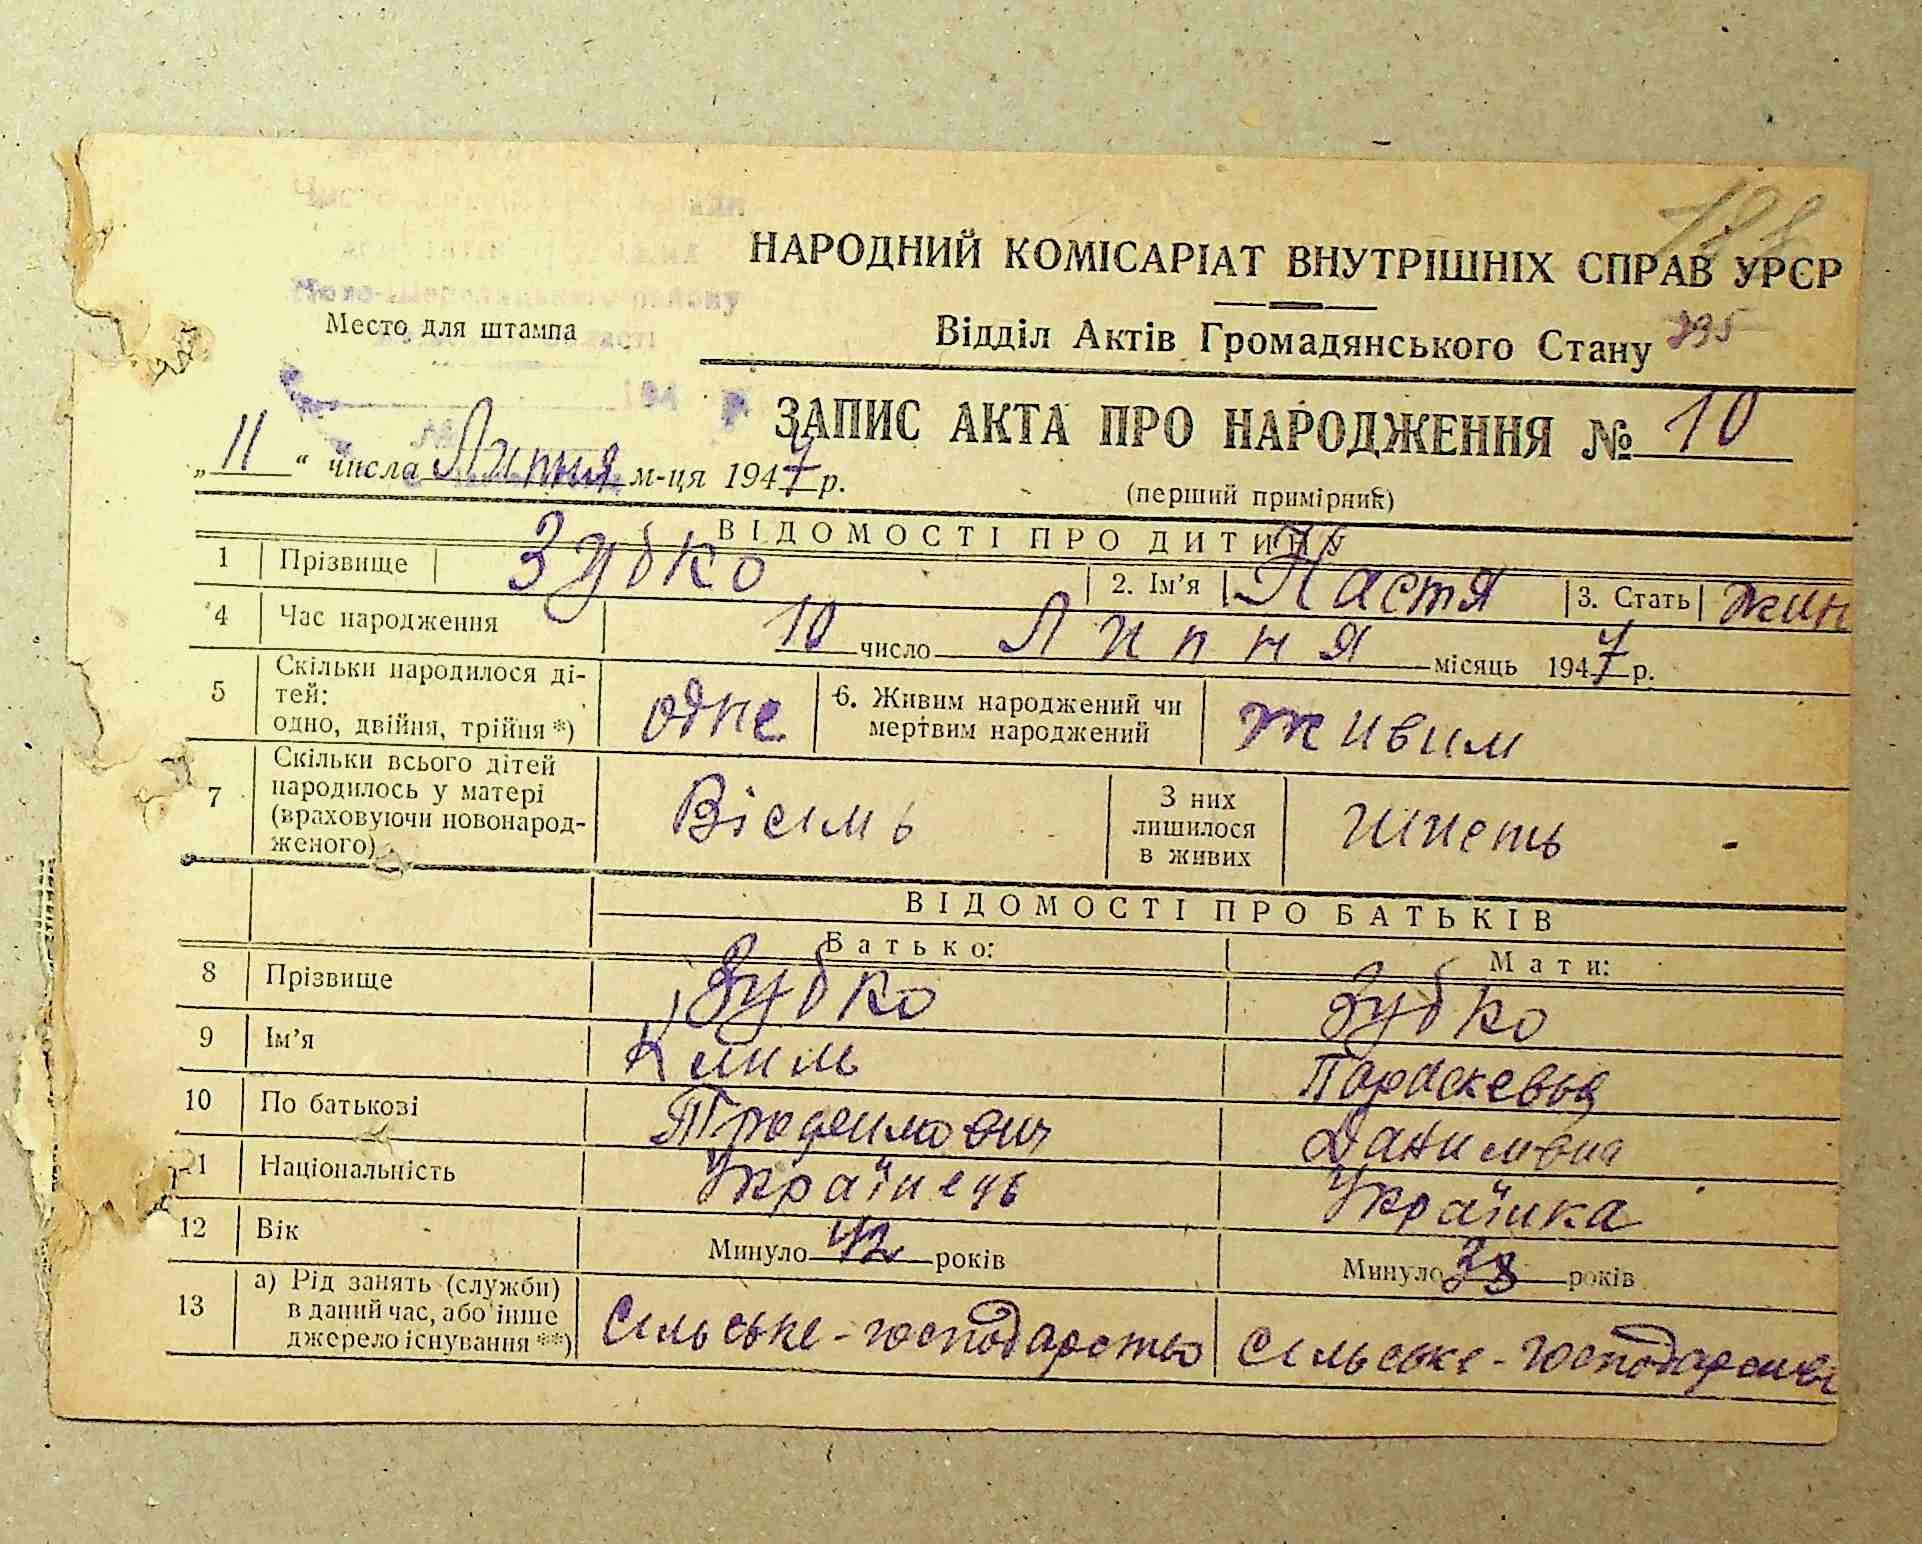 НАРОДНИЙ КОМІСАРІАТ ВНУТРІШНІХ СПРАВ УРСР
Место для штампа
Відділ Актів Громадянського Стану 235
ЗАПИС АКТА ПРО НАРОДЖЕННЯ № 10
„11“ числа Липня м-ця 1947 р.
(перший примірник)
ВІДОМОСТІ ПРО ДИТИНУ
1 Прізвище Зубко 2. Ім'я Настя 3. Стать жин
4 Час народження 10 число Липня місяць 1947 р.
5 Скільки народилося ді-
тей:
одно, двійня, трійня *) одне 6. Живим народжений чи
мертвим народжений живим
7 Скільки всього дітей
народилось у матері
(враховуючи новонарод-
женого) Вісимь З них
лишилося
в живих шисть
ВІДОМОСТІ ПРО БАТЬКІВ
Батько: Мати:
8 Прізвище Зубко Зубко
9 Ім'я Клим Парасковья
10 По батькові Трофимович Данилівна
11 Національність Українець Українка
12 Вік Минуло 42 років Минуло років
13 а) Рід занять (служби)
в даний час, або інше
джерело існування **) Сільське-господарство Сільське-господарство